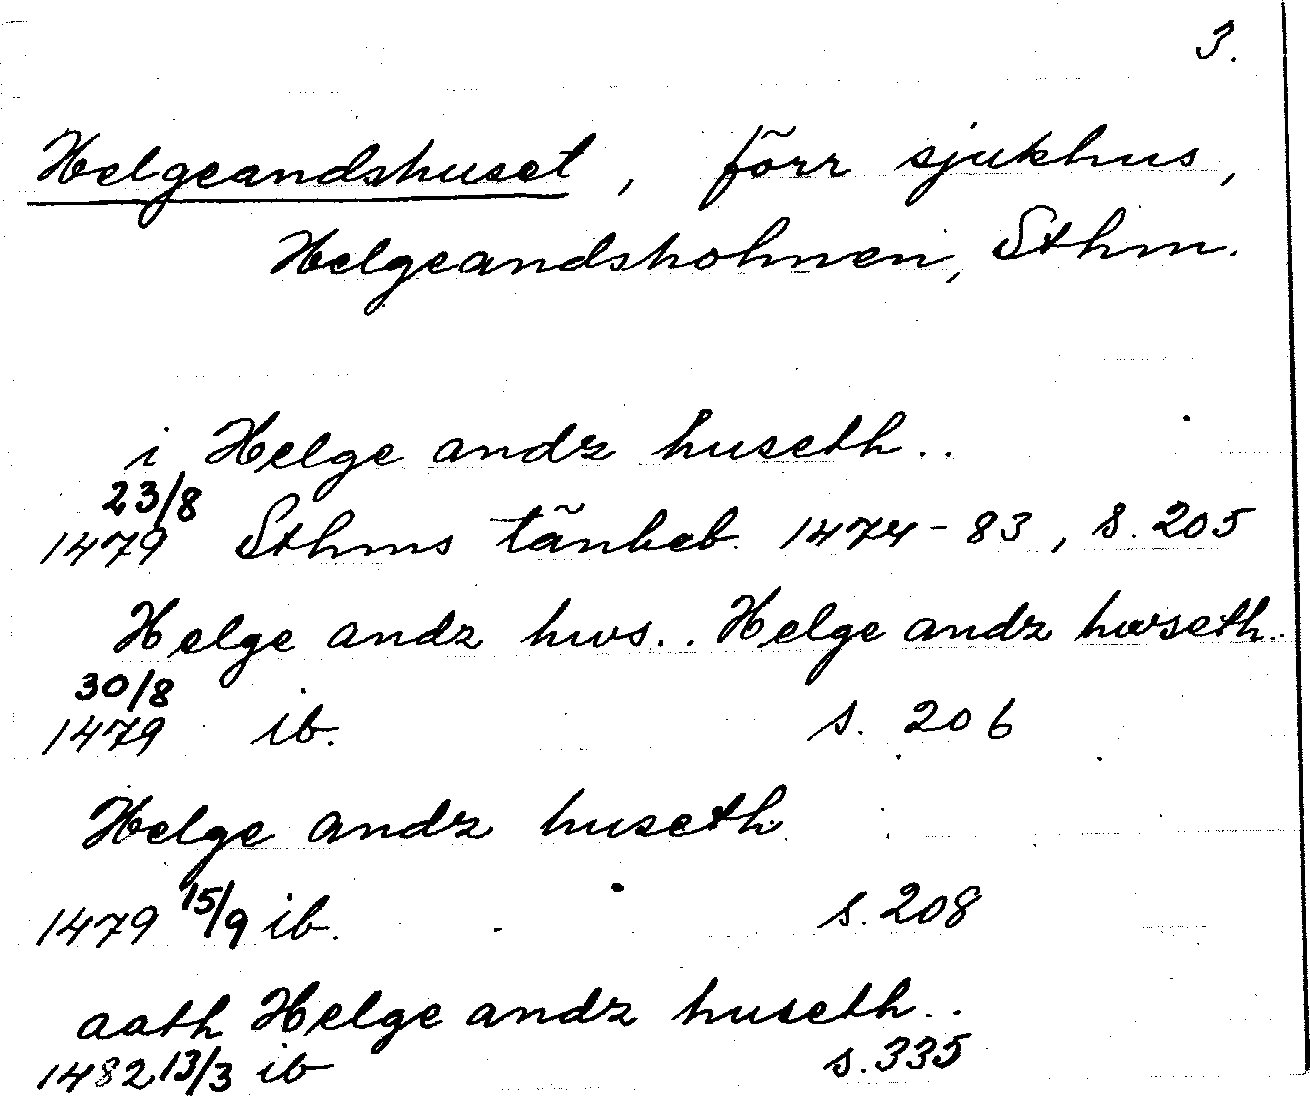 3.
Helgeandshuset, förr sjukhus,
Helgeandsholmen, Sthm.
i Helge andz huseth..
23/8
1479 Sthms tänkeb. 1474-83, s. 205
Helge andz hws.. Helge andz hwseth..
30/8
1479 ib. s. 206
Helge andz huseth
1479 15/9 ib. s. 208
aath Helge andz huseth..
1482 13/3 ib s. 335